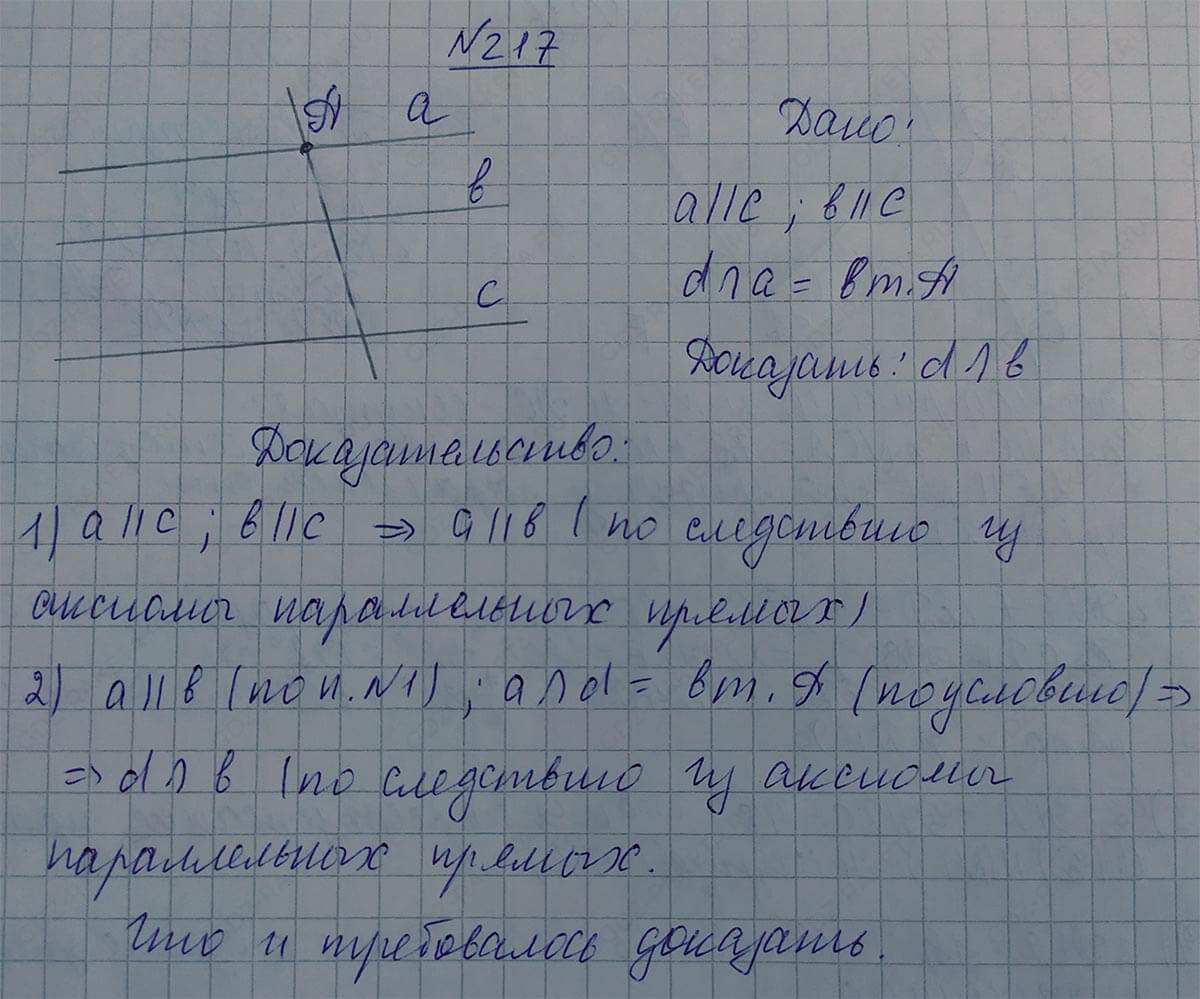 N217
A
a
в
c
Дано:
a || c ; в || c
d ∩ a = в т. A
Доказать: d ∩ в
Доказательство:
1) a || c ; в || c ⇒ a || в ( по следствию из
аксиомы параллельных прямых)
2) a || в (по п. N1) ; a ∩ d = в т. A (по условию) ⇒
⇒ d ∩ в (по следствию из аксиомы
параллельных прямых.
Что и требовалось доказать.